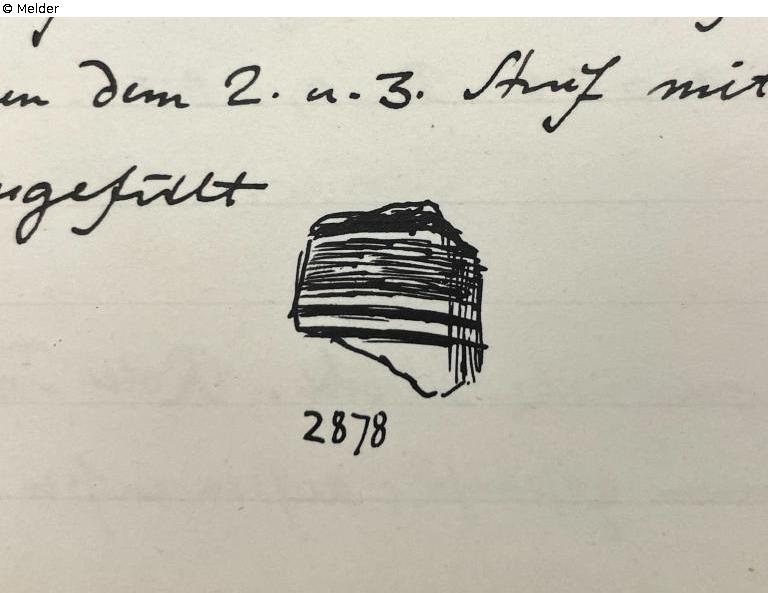 © Melder
en dem 2. u. 3. Streif mit
ngefüllt
2878